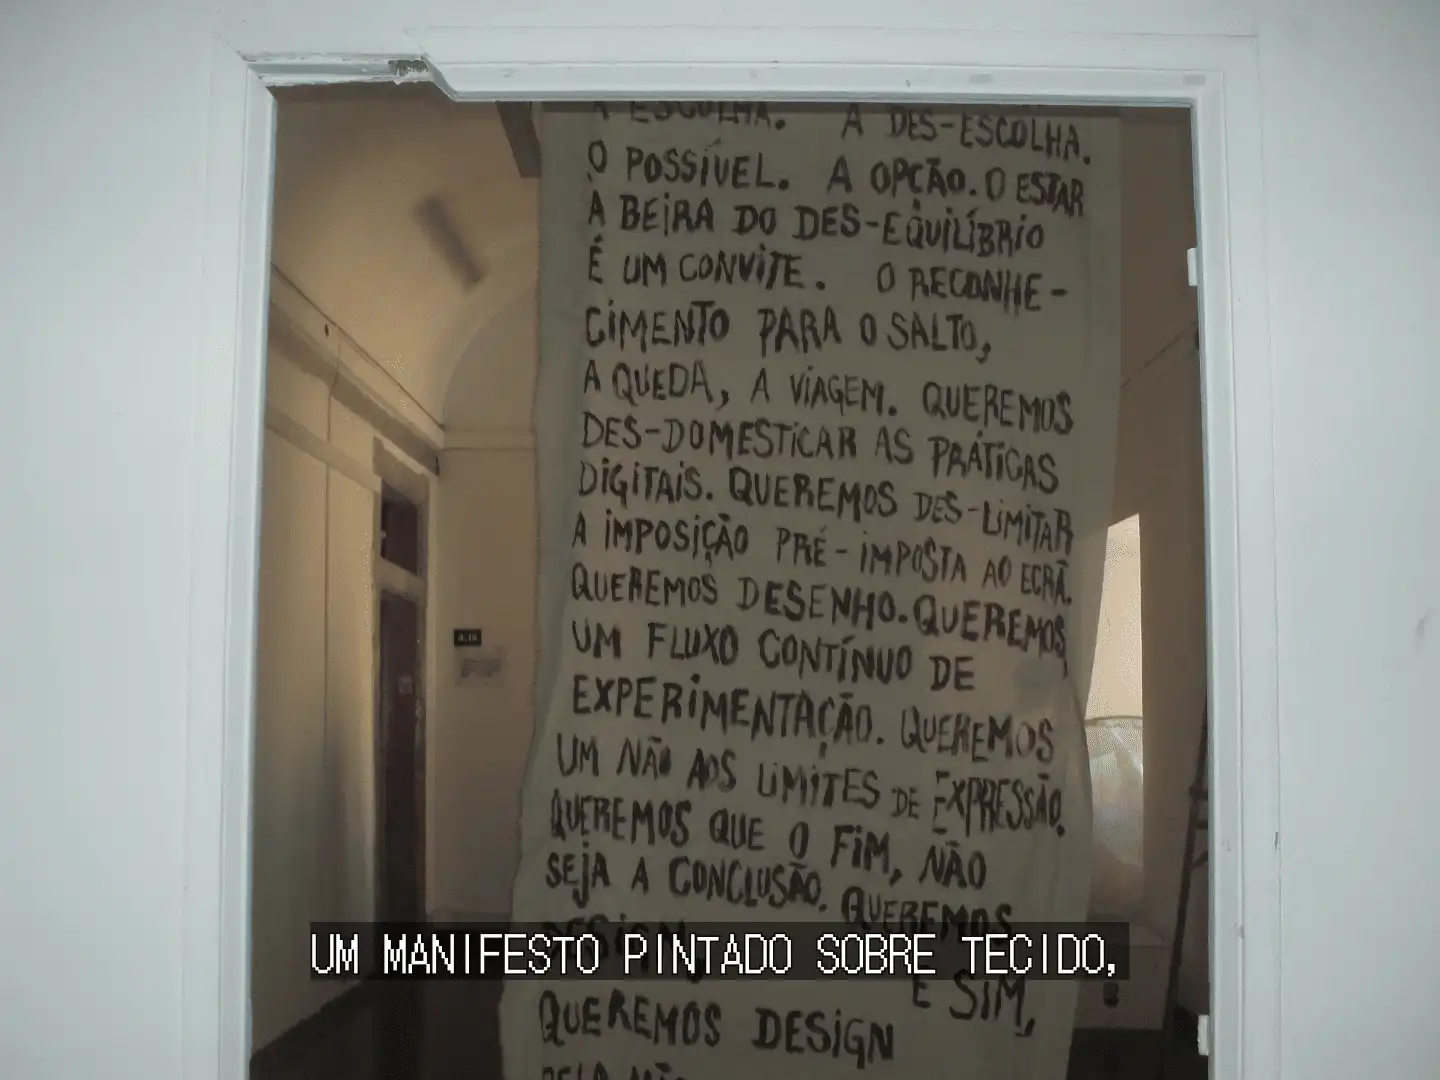 A ESCOLHA. A DES-ESCOLHA.
O POSSÍVEL. A OPÇÃO. O ESTAR
À BEIRA DO DES-EQUILÍBRIO
É UM CONVITE. O RECONHE-
CIMENTO PARA O SALTO,
A QUEDA, A VIAGEM. QUEREMOS
DES-DOMESTICAR AS PRÁTICAS
DIGITAIS. QUEREMOS DES-LIMITAR
A IMPOSIÇÃO PRÉ-IMPOSTA AO ECRÃ.
QUEREMOS DESENHO. QUEREMOS
UM FLUXO CONTÍNUO DE
EXPERIMENTAÇÃO. QUEREMOS
UM NÃO AOS LIMITES DE EXPRESSÃO.
QUEREMOS QUE O FIM, NÃO
SEJA A CONCLUSÃO. QUEREMOS
DESIGN
UM MANIFESTO PINTADO SOBRE TECIDO,
E SIM,
QUEREMOS DESIGN
PELA
A.10